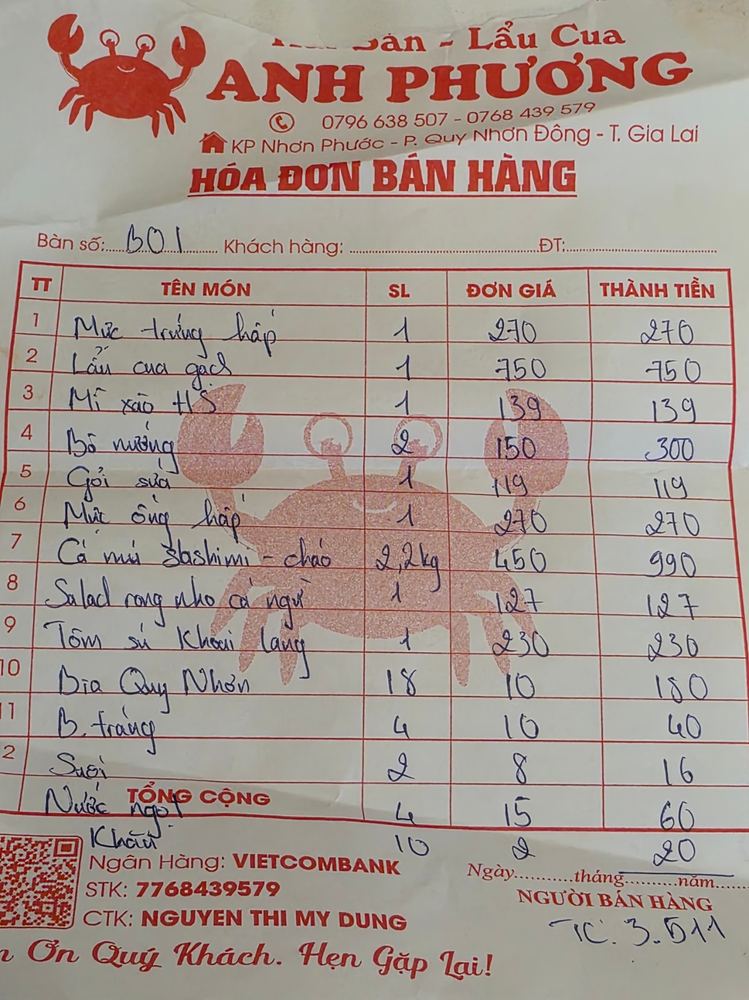 Sản - Lẩu Cua
ANH PHƯƠNG
0796 638 507 - 0768 439 579
KP Nhơn Phước - P. Quy Nhơn Đông - T. Gia Lai
HÓA ĐƠN BÁN HÀNG
Bàn số:..BO1.......... Khách hàng: .......................................... ĐT:..................................
TT TÊN MÓN SL ĐƠN GIÁ THÀNH TIỀN
1 Mực trứng hấp 1 270 270
2 Lẩu cua gạch 1 750 750
3 Mì xào HS 1 139 139
4 Bò nướng 2 150 300
5 Gỏi sứa 1 119 119
6 Mực ống hấp 1 270 270
7 Cá mú Sashimi - cháo 2,2kg 450 990
8 Salad rong nho cá ngừ 1 127 127
9 Tôm sú khoai lang 1 230 230
10 Bia Quy Nhơn 18 10 180
11 B. tráng 4 10 40
2 Suối 2 8 16
TỔNG CỘNG
Nước ngọt 4 15 60
Khăn 10 2 20
Ngân Hàng: VIETCOMBANK
STK: 7768439579
CTK: NGUYEN THI MY DUNG
Ngày...........tháng..........năm......
NGƯỜI BÁN HÀNG
TC. 3.511
Ơn Quý Khách. Hẹn Gặp Lại!